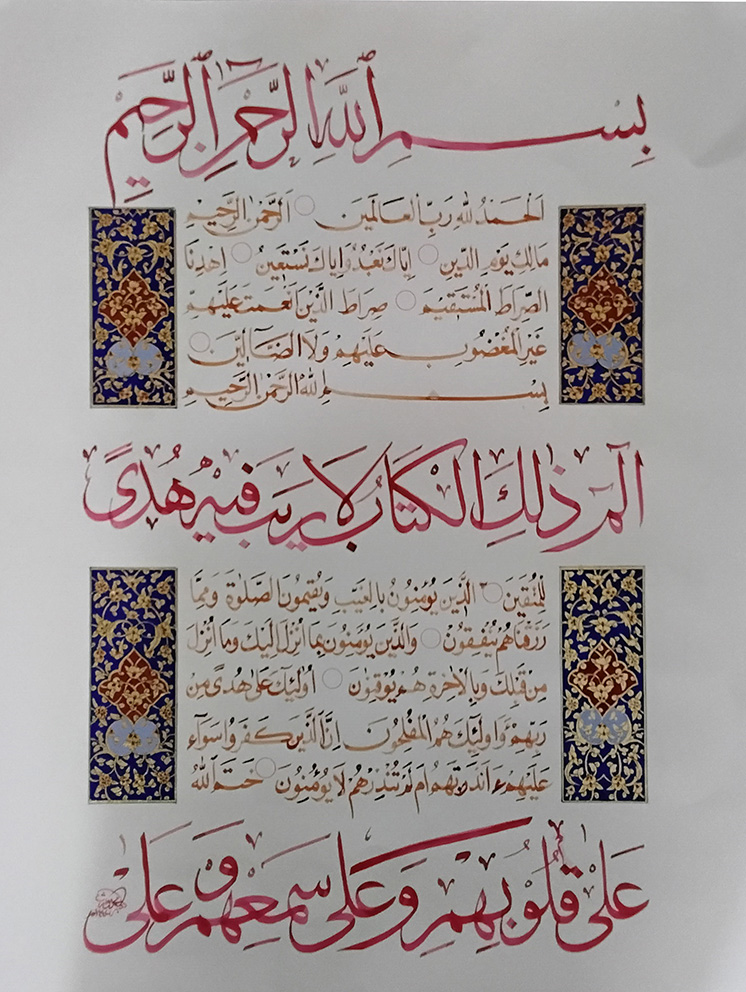 بِسْمِ ٱللَّهِ ٱلرَّحْمَٰنِ ٱلرَّحِيمِ
اَلْحَمْدُ لِلّٰهِ رَبِّ الْعَالَمِينَ اَلرَّحْمٰنِ الرَّحِيمِ
مَالِكِ يَوْمِ الدِّينِ اِيَّاكَ نَعْبُدُ وَاِيَّاكَ نَسْتَعِينُ اِهْدِنَا
الصِّرَاطَ الْمُسْتَقِيمَ صِرَاطَ الَّذِينَ اَنْعَمْتَ عَلَيْهِمْ
غَيْرِ الْمَغْضُوبِ عَلَيْهِمْ وَلَا الضَّآلِّينَ
بِسْمِ اللهِ الرَّحْمٰنِ الرَّحِيمِ
الٓمٓ ذٰلِكَ الْكِتَابُ لَا رَيْبَ فِيهِ هُدًى
لِلْمُتَّقِينَ الَّذِينَ يُؤْمِنُونَ بِالْغَيْبِ وَيُقِيمُونَ الصَّلٰوةَ وَمِمَّا
رَزَقْنَاهُمْ يُنْفِقُونَ وَالَّذِينَ يُؤْمِنُونَ بِمَا اُنْزِلَ اِلَيْكَ وَمَا اُنْزِلَ
مِنْ قَبْلِكَ وَبِالْاٰخِرَةِ هُمْ يُوقِنُونَ اُولٰئِكَ عَلٰى هُدًى مِنْ
رَبِّهِمْ وَاُولٰئِكَ هُمُ الْمُفْلِحُونَ اِنَّ الَّذِينَ كَفَرُوا سَوَآءٌ
عَلَيْهِمْ ءَاَنْذَرْتَهُمْ اَمْ لَمْ تُنْذِرْهُمْ لَا يُؤْمِنُونَ خَتَمَ اللهُ
عَلٰى قُلُوبِهِمْ وَعَلٰى سَمْعِهِمْ وَعَلٰى